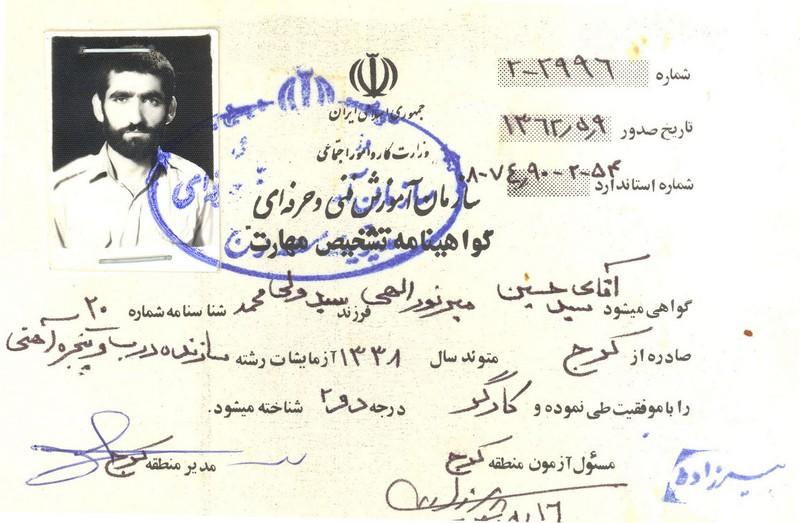 شماره ۲-۲۹۹۶
جمهوری اسلامی ایران
تاریخ صدور ۱۳۶۲/۵/۹
وزارت کار و امور اجتماعی
شماره استاندارد ۸-۷۴/۹۰-۲-۵۴
سازمان آموزش فنی و حرفه‌ای
گواهینامه تشخیص مهارت
گواهی میشود آقای سید حسین میرنورالهی فرزند سید ولی محمد شناسنامه شماره ۲۰
صادره از کرج متولد سال ۱۳۳۸ آزمایشات رشته سازنده درب و پنجره آهنی
را با موفقیت طی نموده و کارگر درجه دو ۲ شناخته میشود.
مسئول آزمون منطقه کرج مدیر منطقه کرج